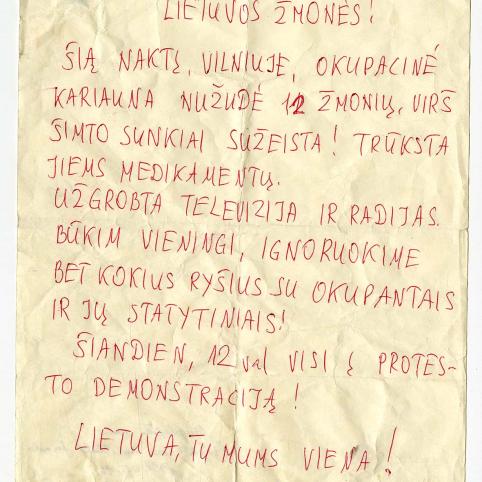 LIETUVOS ŽMONĖS!
ŠIĄ NAKTĮ, VILNIUJE, OKUPACINĖ
KARIAUNA NUŽUDĖ 12 ŽMONIŲ, VIRŠ
ŠIMTO SUNKIAI SUŽEISTA! TRŪKSTA
JIEMS MEDIKAMENTŲ.
UŽGROBTA TELEVIZIJA IR RADIJAS.
BŪKIM VIENINGI, IGNORUOKIME
BET KOKIUS RYŠIUS SU OKUPANTAIS
IR JŲ STATYTINIAIS!
ŠIANDIEN, 12 val VISI Į PROTES-
TO DEMONSTRACIJĄ!
LIETUVA, TU MUMS VIENA!